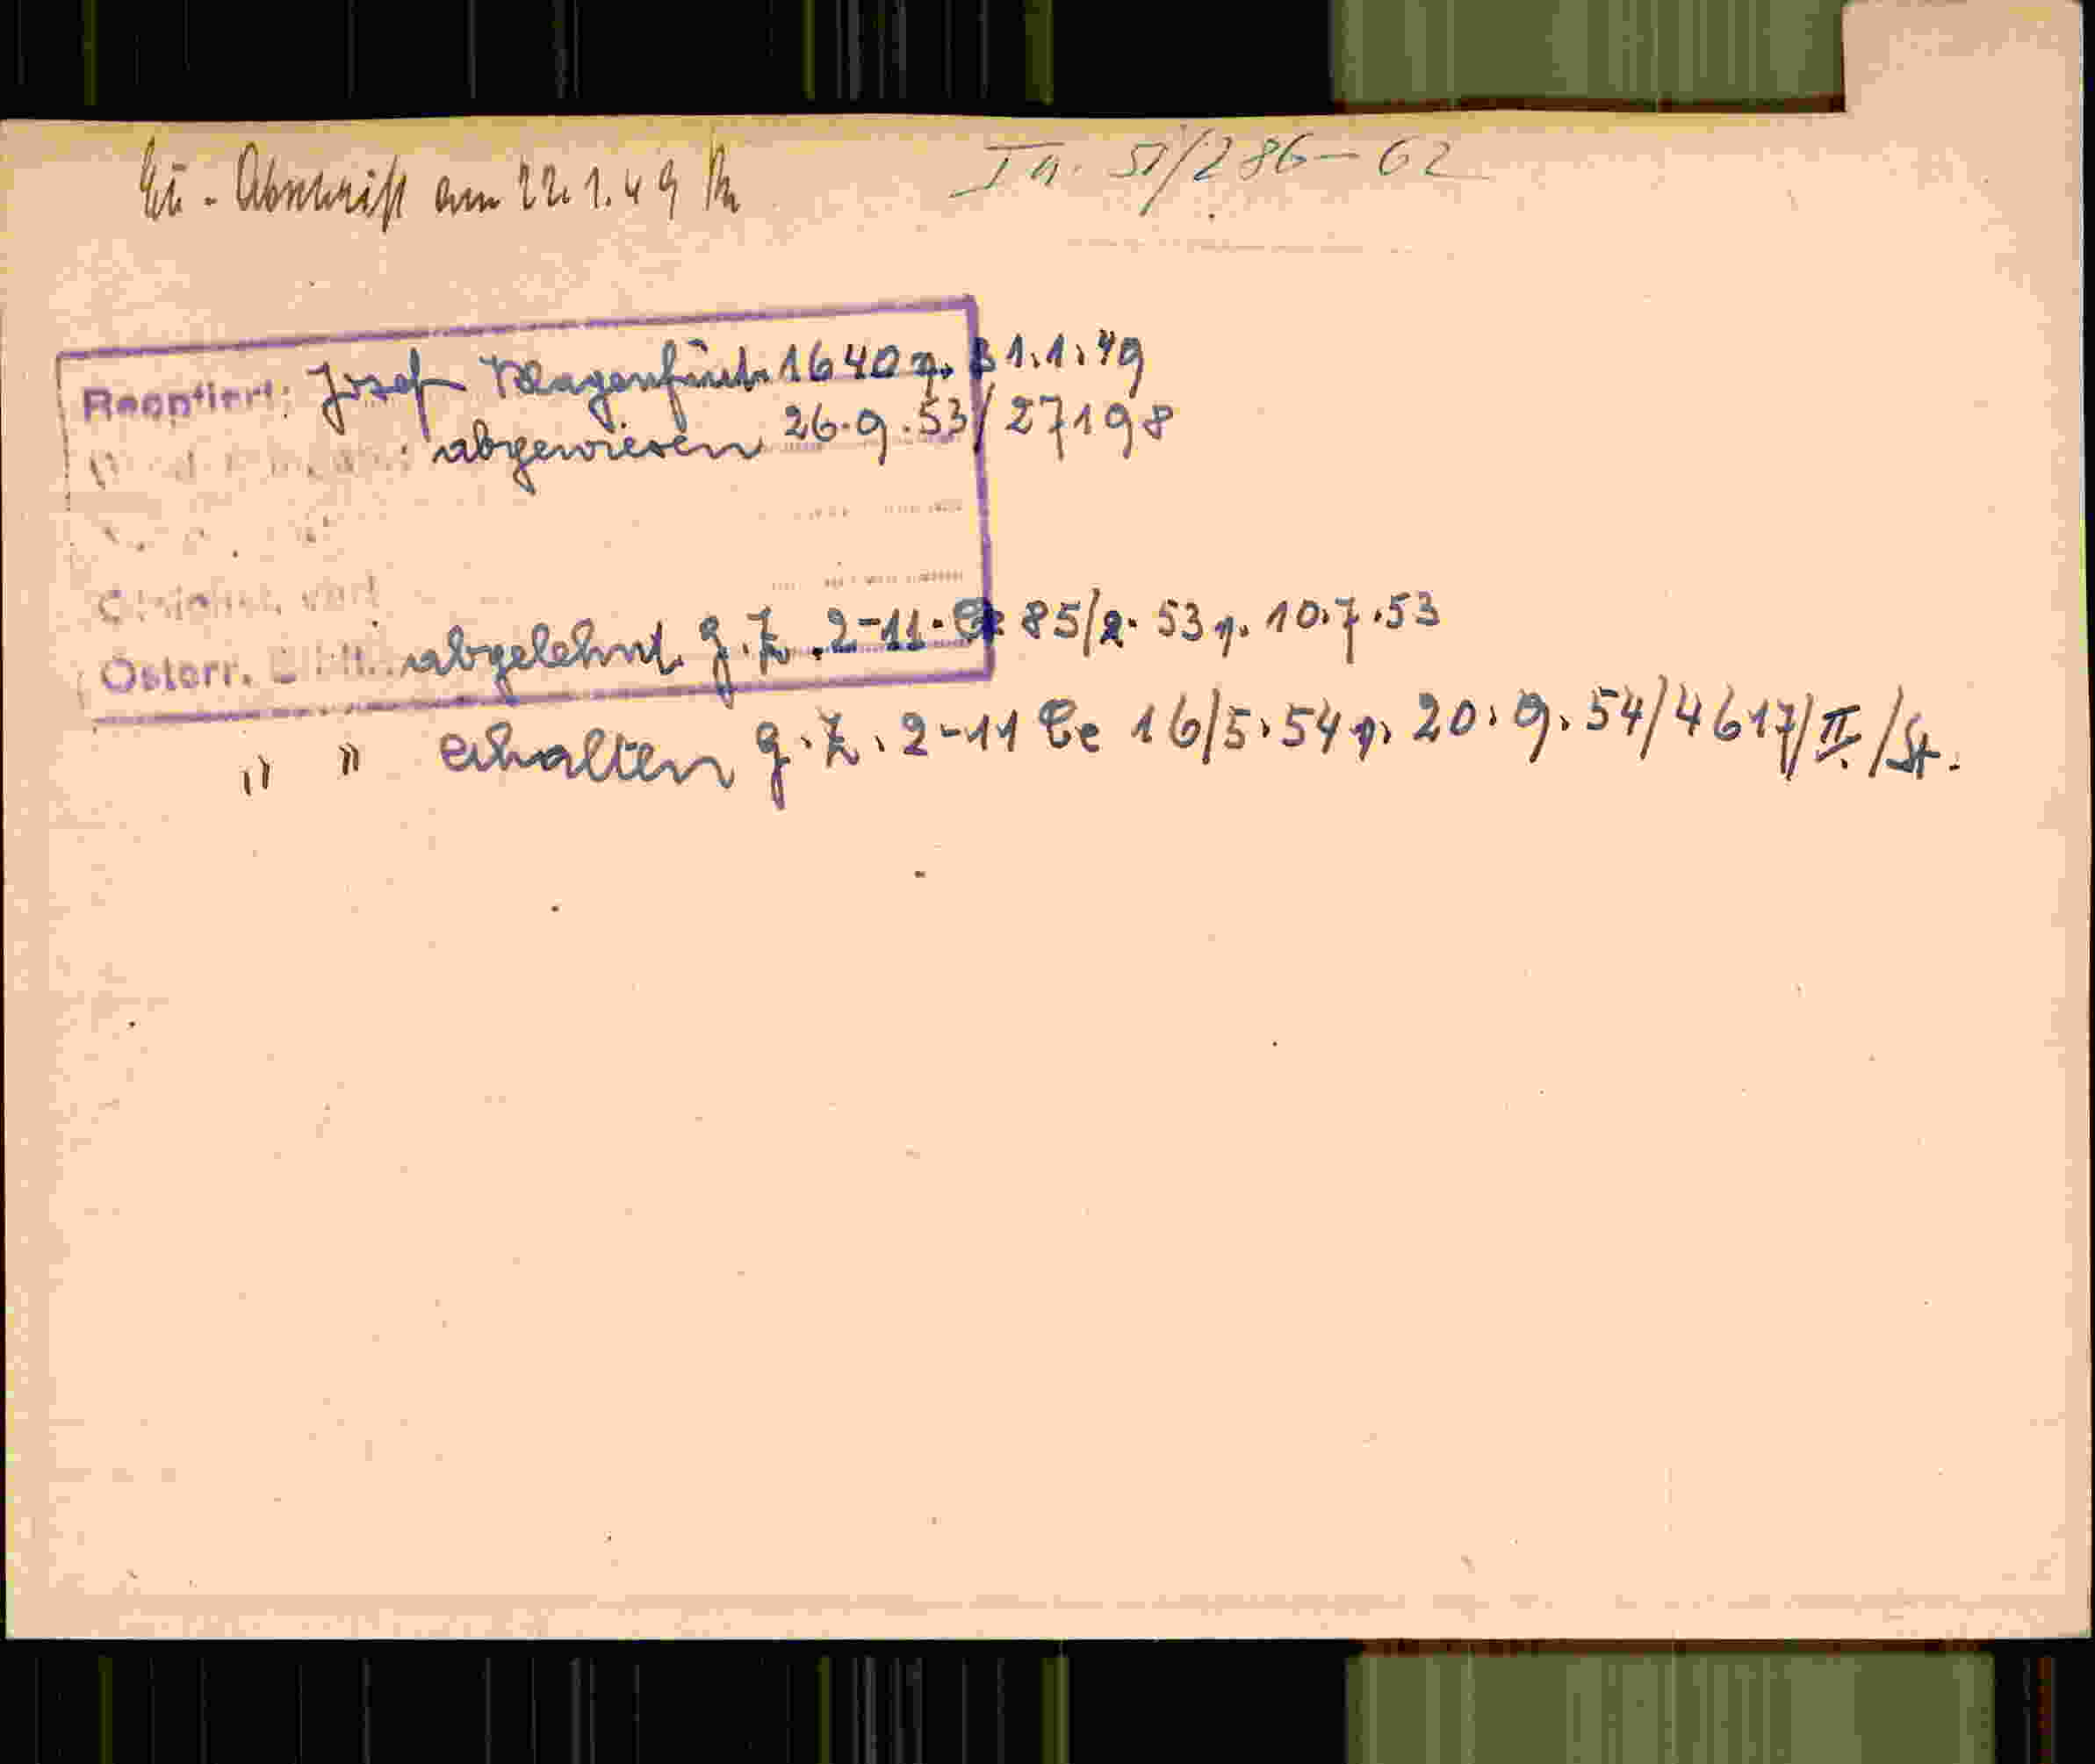 Abschrift am 22.1.49
Ia. 51/286-62
Reoptiert: Josef Klagenfurt 1640 v. 31.1.49
abgewiesen 26.9.53/27198
Österr. abgelehnt g.Z. 2-11-Ce 85/2.53 v. 10.7.53
" " erhalten g.Z. 2-11 Ce 16/5.54 v. 20.9.54/4617/II/St.